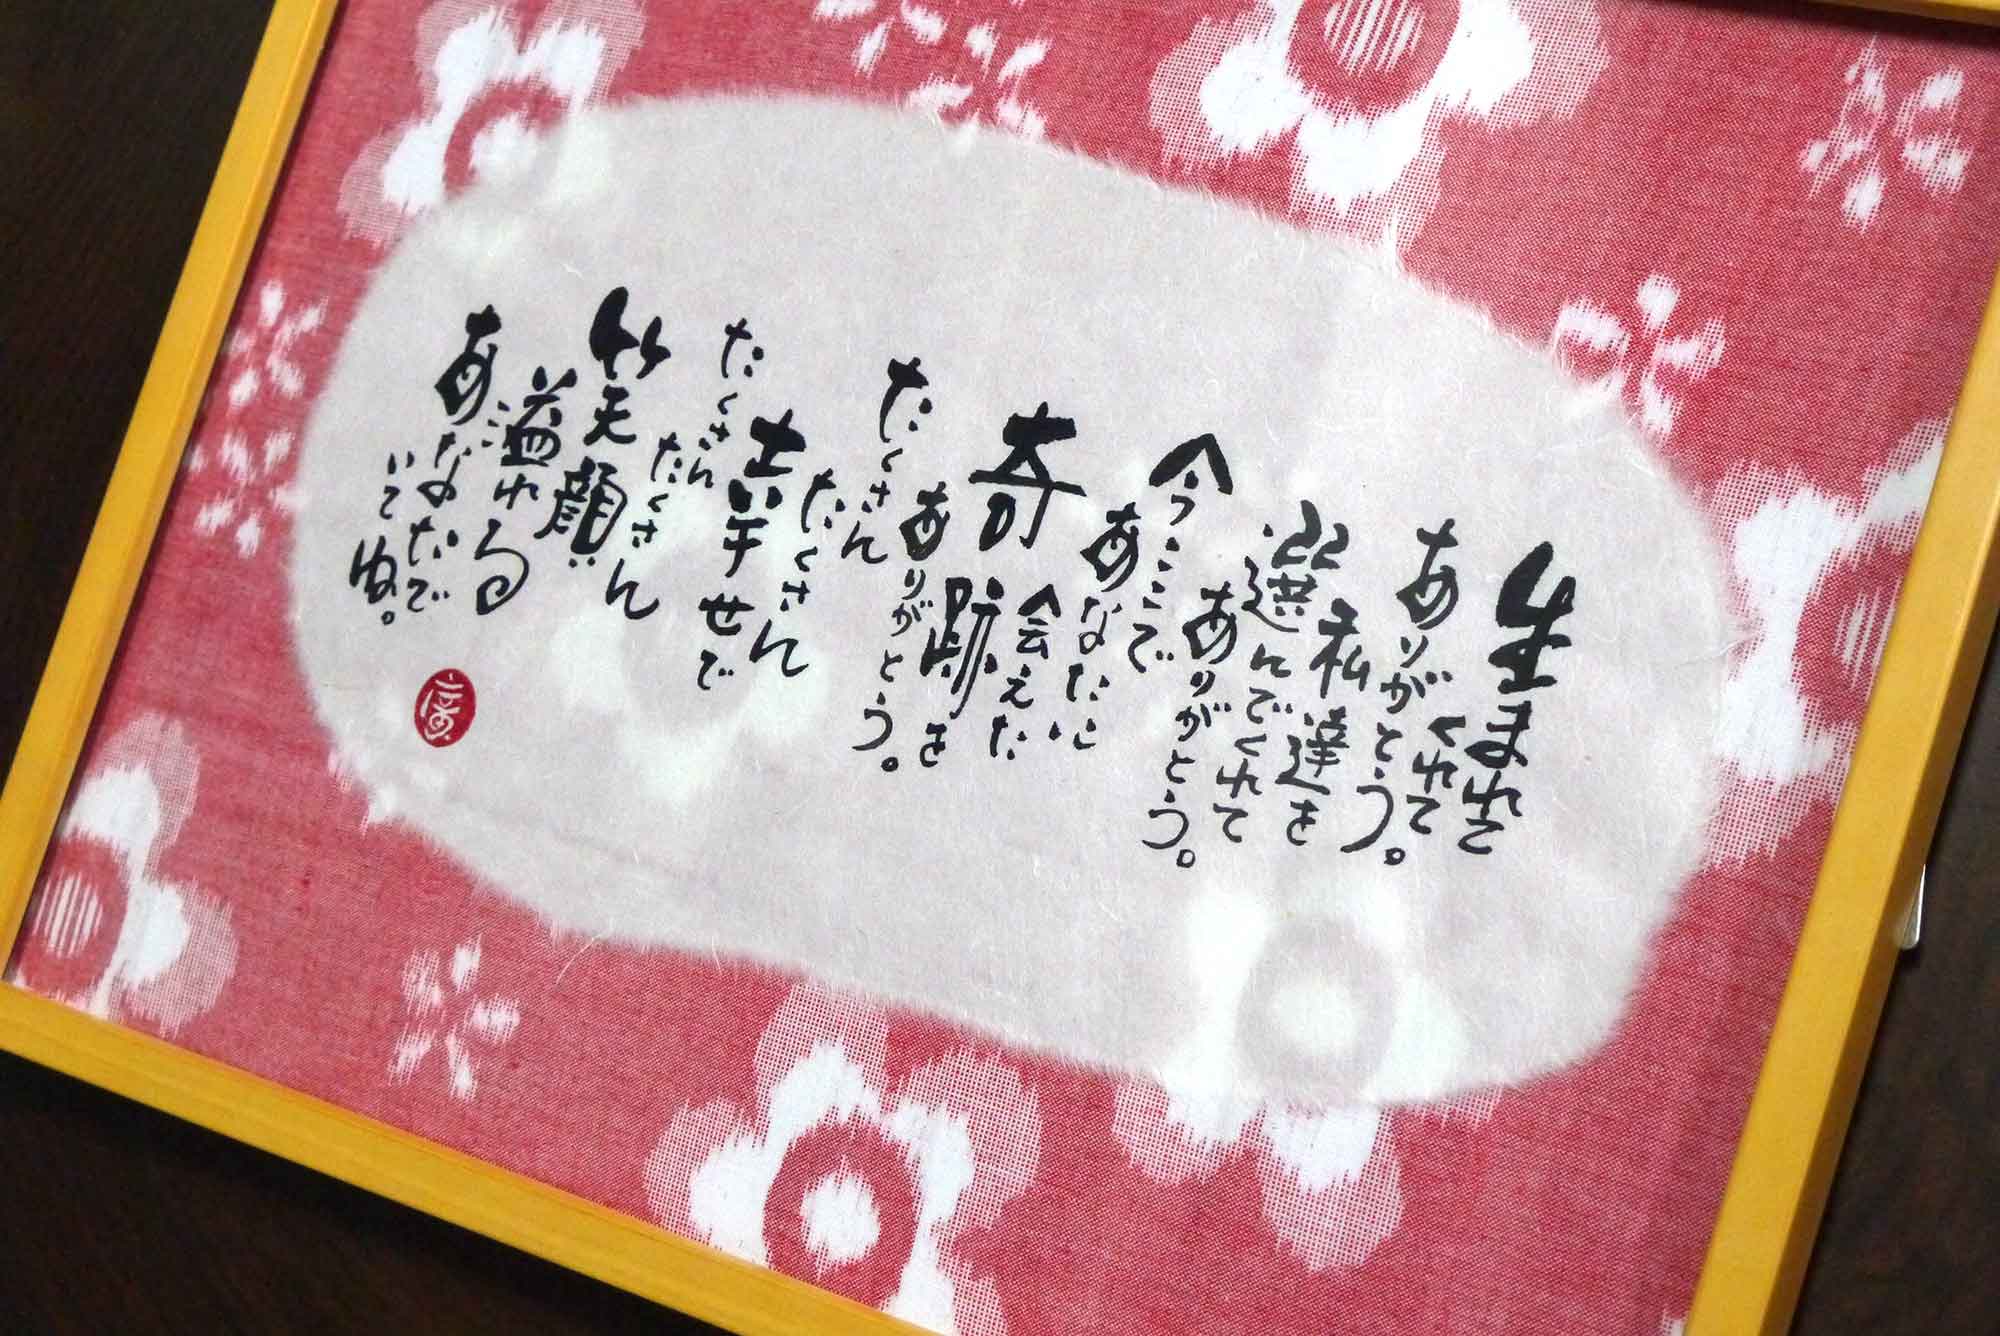 生まれて
くれて
ありがとう。
私達を
選んでくれて
ありがとう。
今ここで
あなたに
会えた
奇跡を
ありがとう。
たくさん
たくさん
幸せで
たくさん
たくさん
笑顔
溢れる
あなたで
いてね。